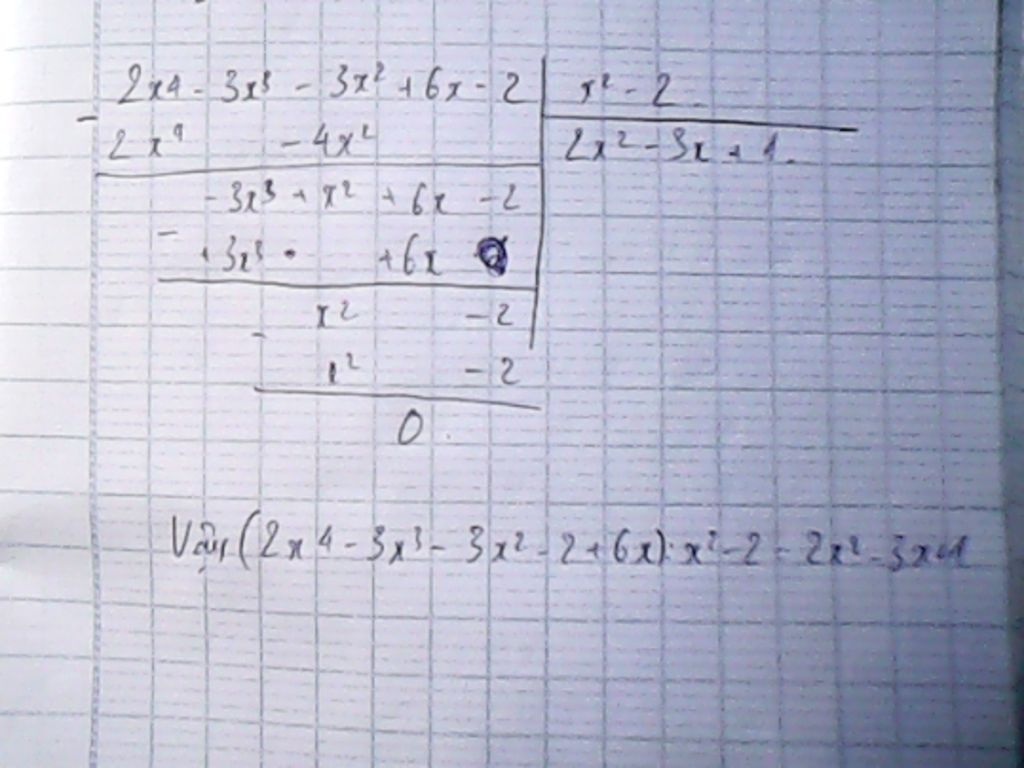 2x4 - 3x3 - 3x2 + 6x - 2 x2 - 2
- 2x4 - 4x2 2x2 - 3x + 1.
-3x3 + x2 + 6x - 2
- +3x3 +6x
x2 - 2
- x2 - 2
0
Vậy (2x4 - 3x3 - 3x2 - 2 + 6x) : x2 - 2 = 2x2 - 3x + 1